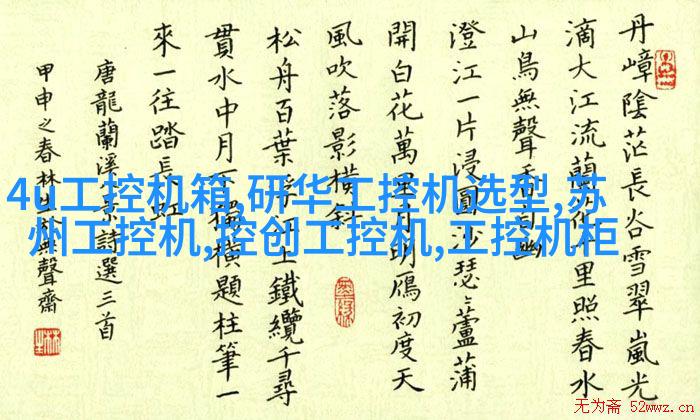 丹嶂陰茫長谷雪翠嵐光
滴大江流蘭 里照春水
山鳥無聲 自幽
澄江一片浸圓沙瑟〻蘆蒲
開白花萬里月明鴈初度天
風吹落影橫斜
松舟百葉 上鐵纜千尋
貫水中月 橫題柱筆一
來一往踏長虹
唐龍蘭溪 詩選三首
甲申之春林生 無聲齋
4u工控机箱,研华工控机选型,苏
州工控机,控创工控机,工控机柜
无为斋 52wwz.cn